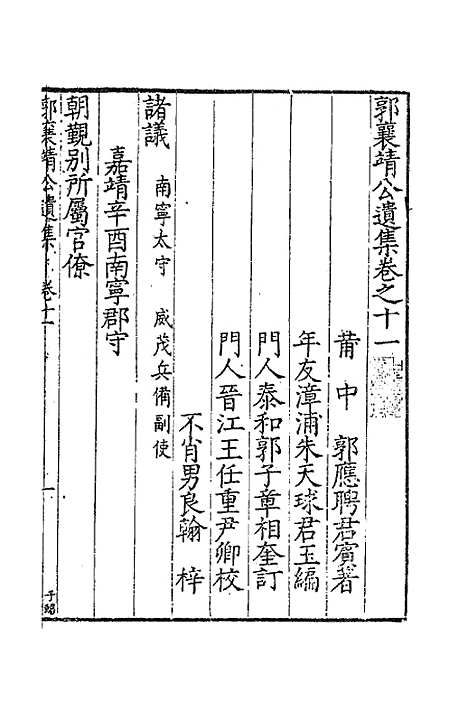 郭襄靖公遺集卷之十一
莆中 郭應聘君賓著
年友漳浦朱天球君玉編
門人泰和郭子章相奎訂
門人晉江王任重尹卿校
不肖男良翰 梓
諸議 南寧太守 威茂兵備副使
嘉靖辛酉南寧郡守
朝覲別所屬官僚
郭襄靖公遺集 卷十一 一